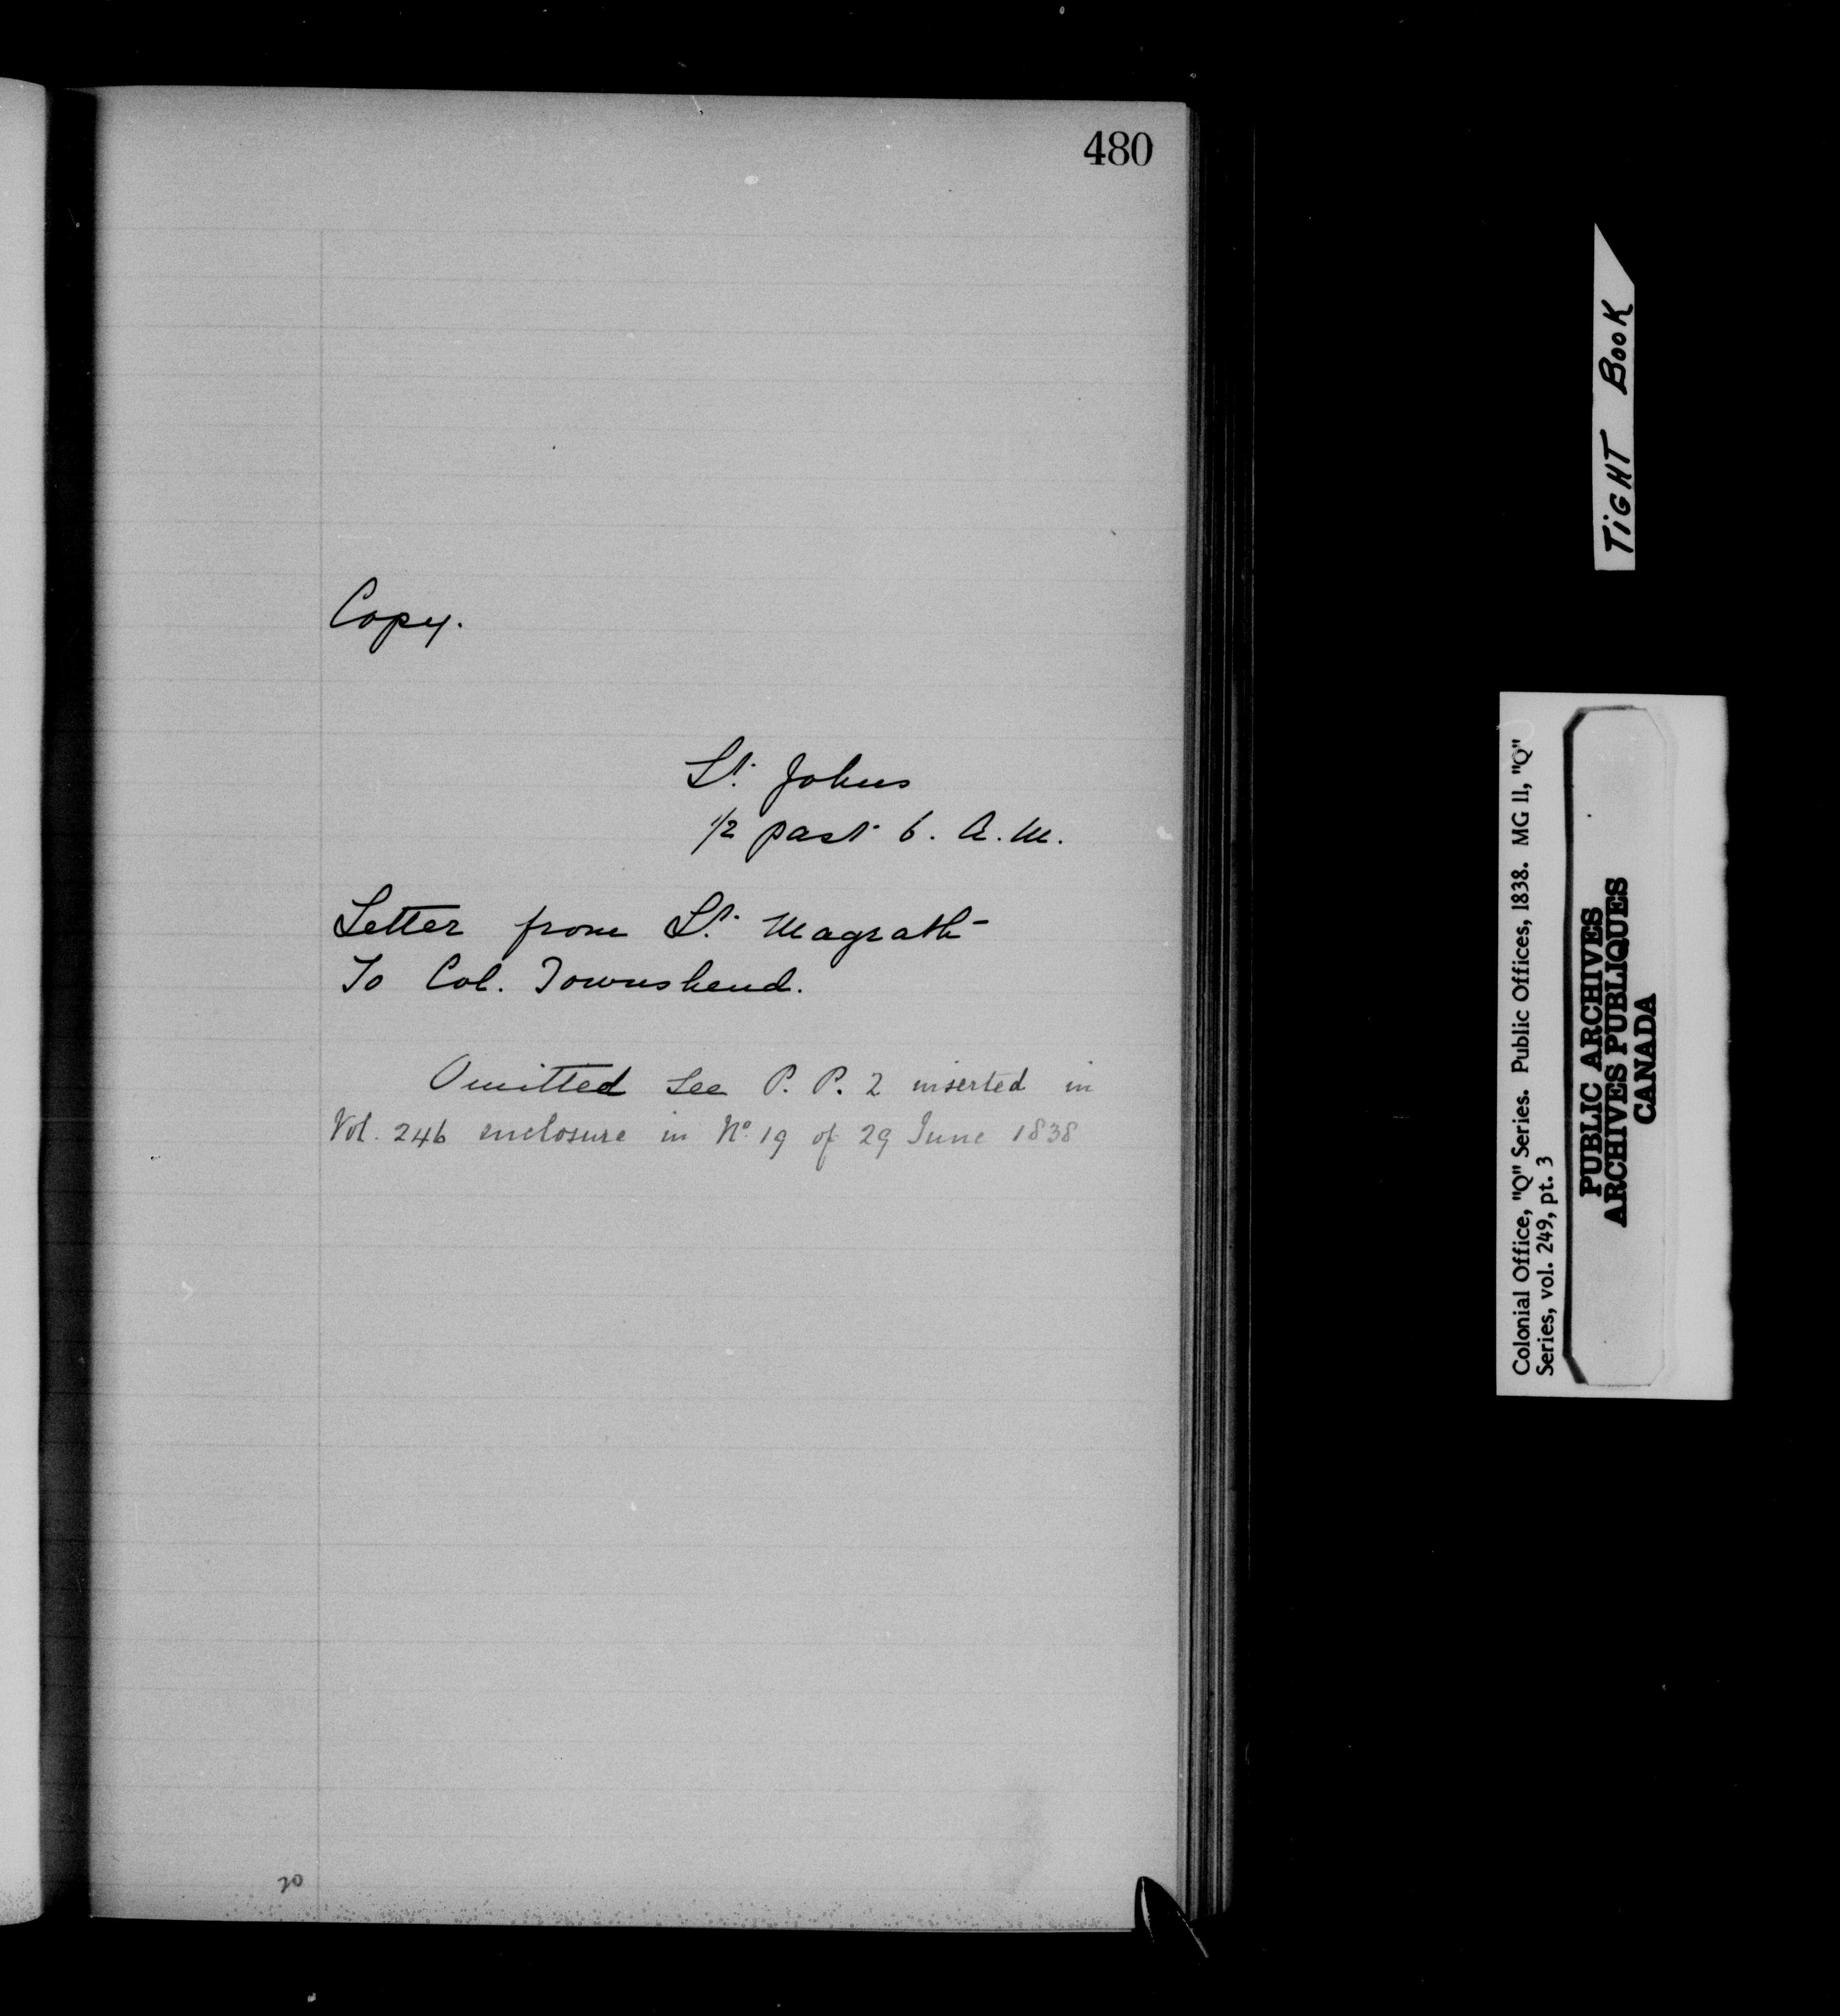 480
Copy.
St. Johns
1/2 past 6. A.M.
Letter from Lt. Magrath
To Col. Townshend.
Omitted See P. P. 2 inserted in
Vol. 246 enclosure in No. 19 of 29 June 1838
20
TIGHT BOOK
Colonial Office, "Q" Series. Public Offices, 1838. MG 11, "Q"
Series, vol. 249, pt. 3
PUBLIC ARCHIVES
ARCHIVES PUBLIQUES
CANADA